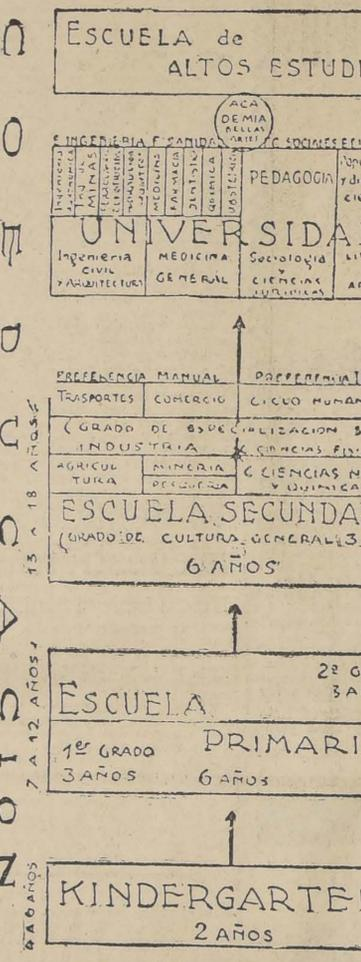 ESCUELA de
ALTOS ESTUDI
ACA
DEMIA
BELLAS
ARTES
E INGENIERIA
MINAS
MEDICINA
FARMACIA
DENTISTICA
QUIMICA
OBSTETRICIA
PEDAGOGIA
UNIVERSIDA
Ingenieria
CIVIL
Y ARQUITECTURA
MEDICINA
GENERAL
Sociologia
Y
CIENCIAS
JURIDICAS
PREFERENCIA MANUAL
PREFERENCIA I
TRASPORTES
COMERCIO
CICLO HUMAN
(GRADO DE ESPECIALIZACION
INDUSTRIA
C. CIENCIAS FISI
AGRICUL
TURA
MINERIA
PESQUERIA
C CIENCIAS N
Y QUIMICA
ESCUELA SECUNDA
(GRADO DE CULTURA GENERAL: 3
6 AÑOS
13 A 18 AÑOS
2º G
3 A
ESCUELA
PRIMARI
1er GRADO
3 AÑOS
6 AÑOS
7 A 12 AÑOS
KINDERGARTE
2 AÑOS
4 A 6 AÑOS